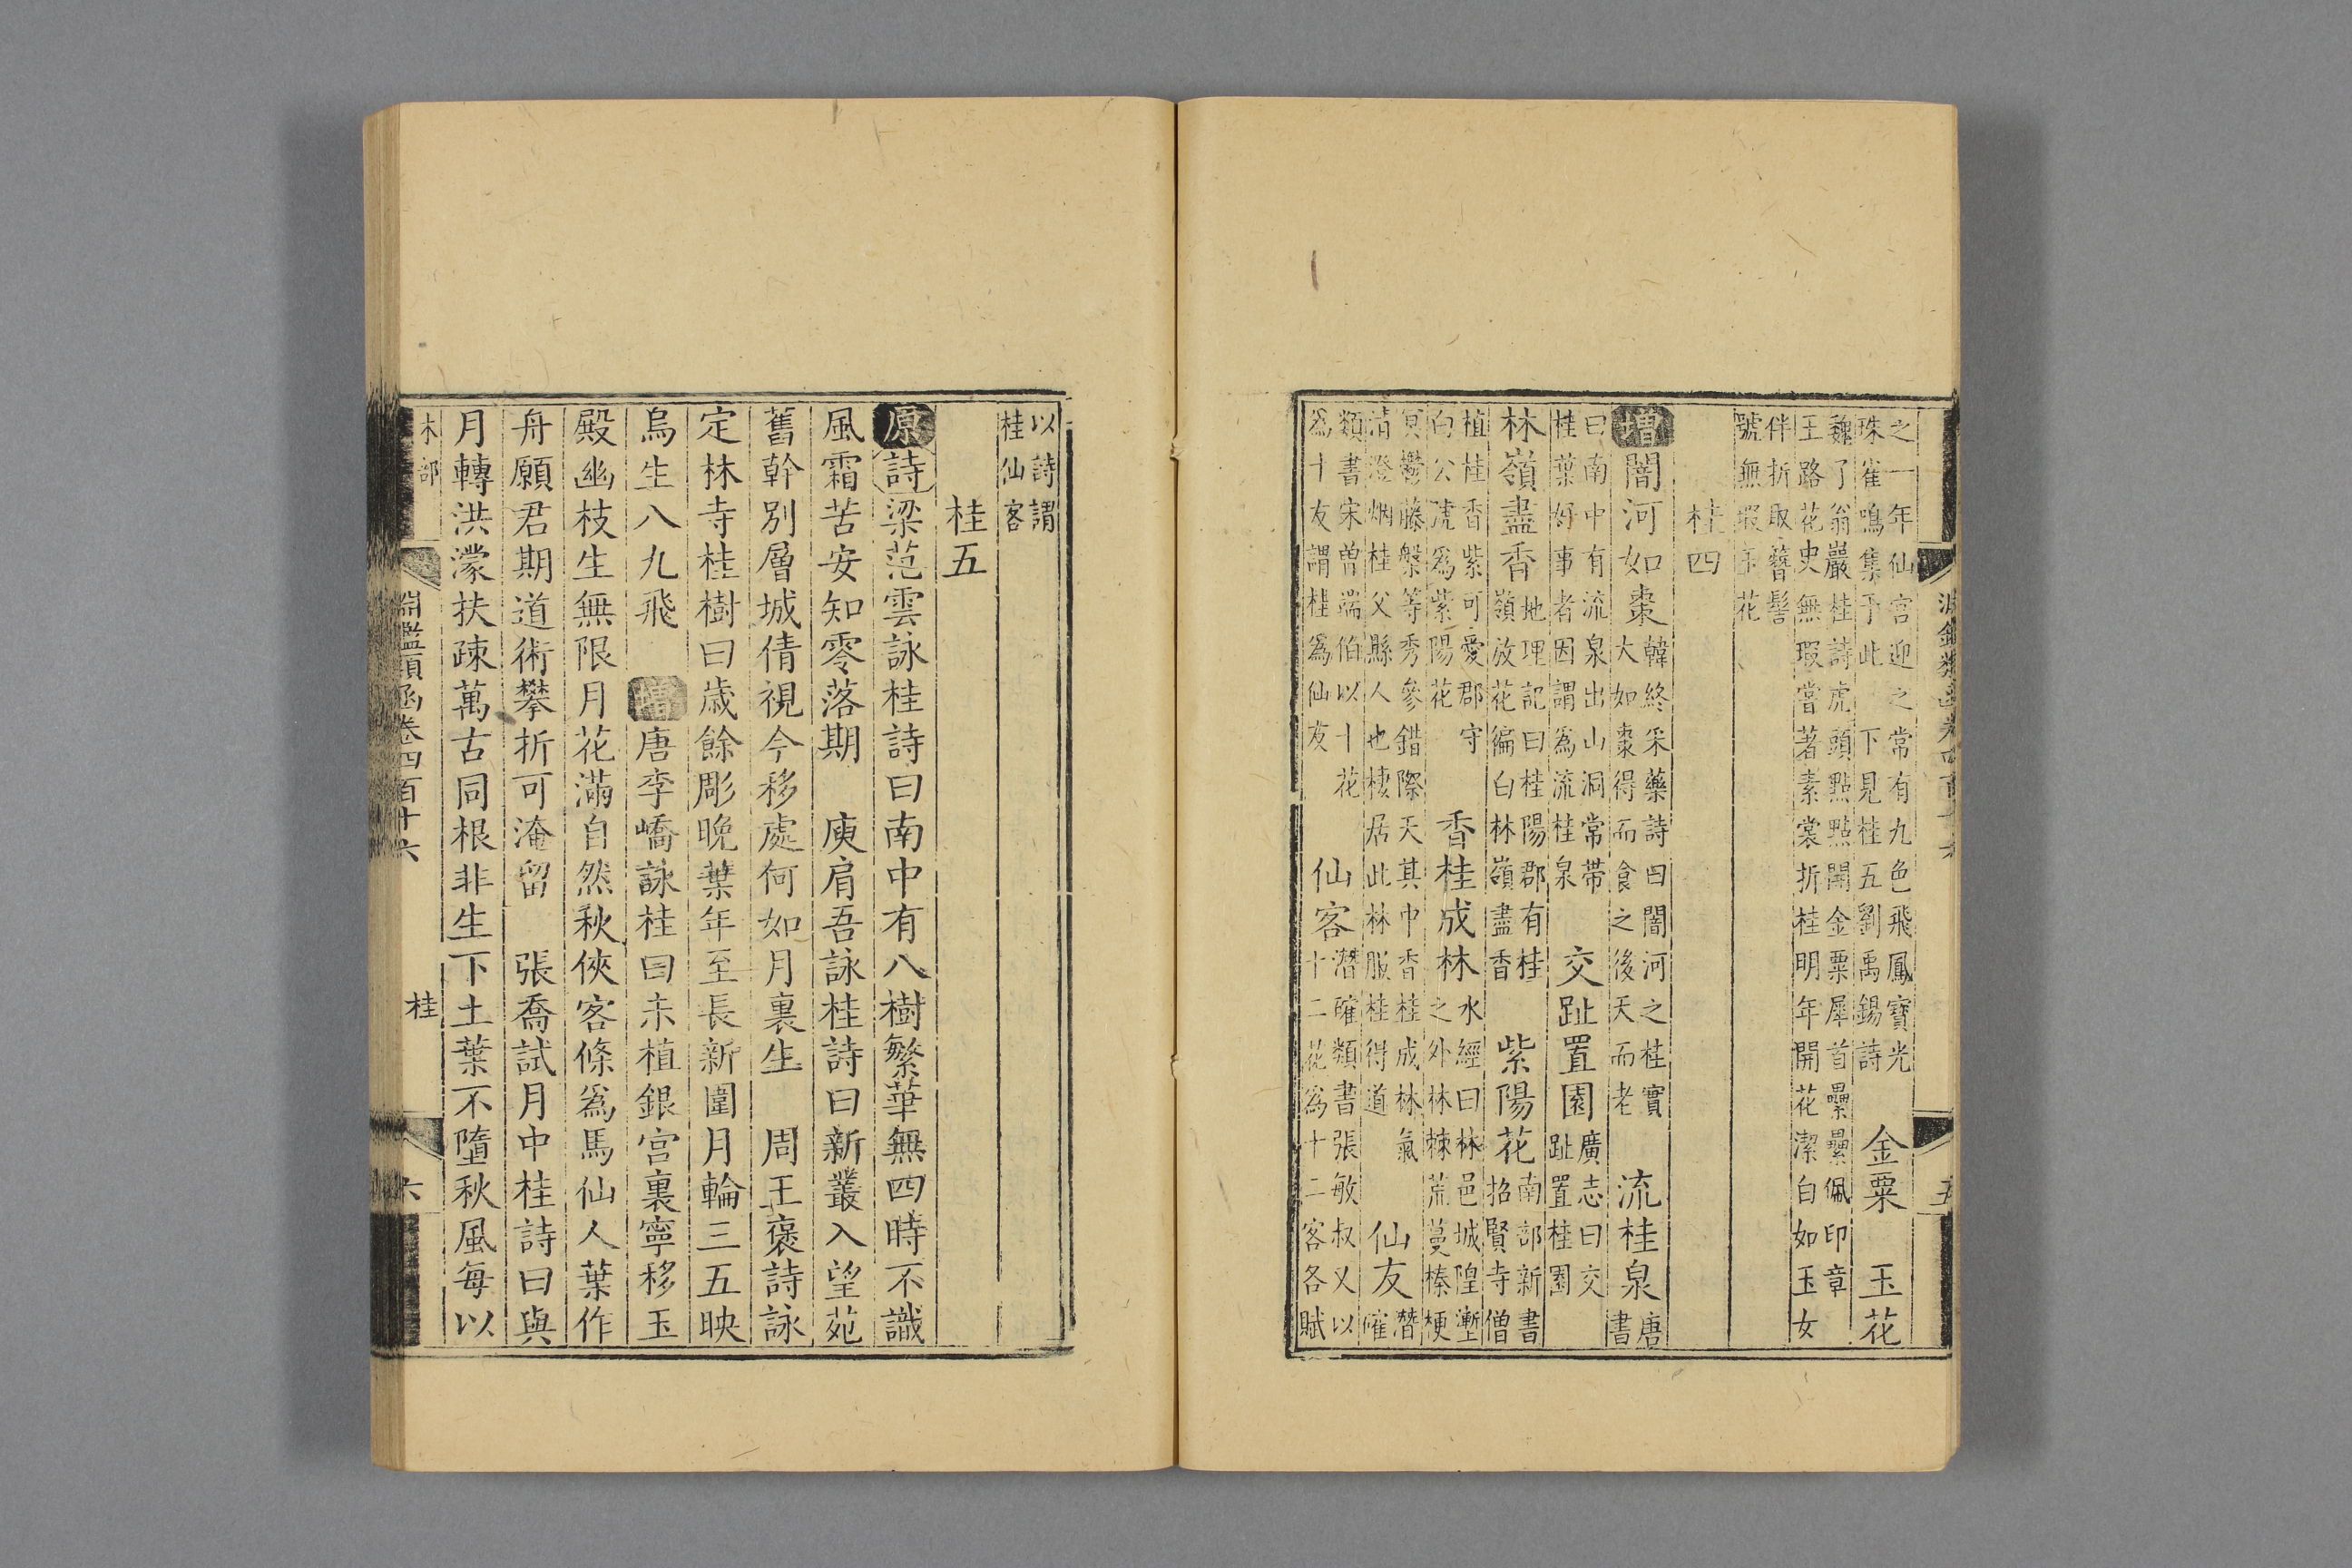 之一年仙宮迎之常有九色飛鳳寶光
珠雀鳴集于此　下見桂五劉禹錫詩
金粟
魏了翁巖桂詩虎頭點點開金粟犀首纍纍佩印章
玉花
王路花史無瑕嘗著素裳折桂明年開花潔白如玉女
伴折取簪髻
號無瑕玉花
桂四
增闇河如棗
韓終采藥詩曰闇河之桂實
大如棗得而食之後天而老
流桂泉
唐
書
曰南中有流泉出山洞常帶
桂葉好事者因謂爲流桂泉
交趾置園
廣志曰交
趾置桂園
林嶺盡香
地理記曰桂陽郡有桂
嶺放花徧白林嶺盡香
紫陽花
南部新書
招賢寺僧
植桂香紫可愛郡守
白公號爲紫陽花
香桂成林
水經曰林邑城隍塹
之外林棘荒蔓榛梗
冥鬱藤盤等秀參錯際天其中香桂成林氣
清澄烟桂父縣人也棲居此林服桂得道
仙友
潛
確
類書宋曾端伯以十花
爲十友謂桂爲仙友
仙客
潛確類書張敏叔又以
十二花爲十二客各賦
淵鑑類函卷四百十六
五
以詩謂
桂仙客
桂五
原詩梁范雲詠桂詩曰南中有八樹繁華無四時不識
風霜苦安知零落期　庾肩吾詠桂詩曰新叢入望苑
舊幹別層城倩視今移處何如月裏生　周王褒詩詠
定林寺桂樹曰歲餘彫晚葉年至長新圍月輪三五映
烏生八九飛　增唐李嶠詠桂曰未植銀宮裏寧移玉
殿幽枝生無限月花滿自然秋俠客條爲馬仙人葉作
舟願君期道術攀折可淹留　張喬試月中桂詩曰與
月轉洪濛扶疎萬古同根非生下土葉不墮秋風每以
木部
淵鑑類函卷四百十六
桂
六